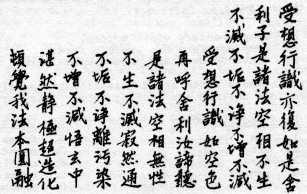 受想行識亦復如是舍
利子是諸法空相不生
不滅不垢不淨不增不減
受想行識如空色
再呼舍利汝諦聽
是諸法空相無性
不生不滅寂然通
不垢不淨離污染
不增不減悟玄中
湛然靜極超造化
頓覺我法本圓融